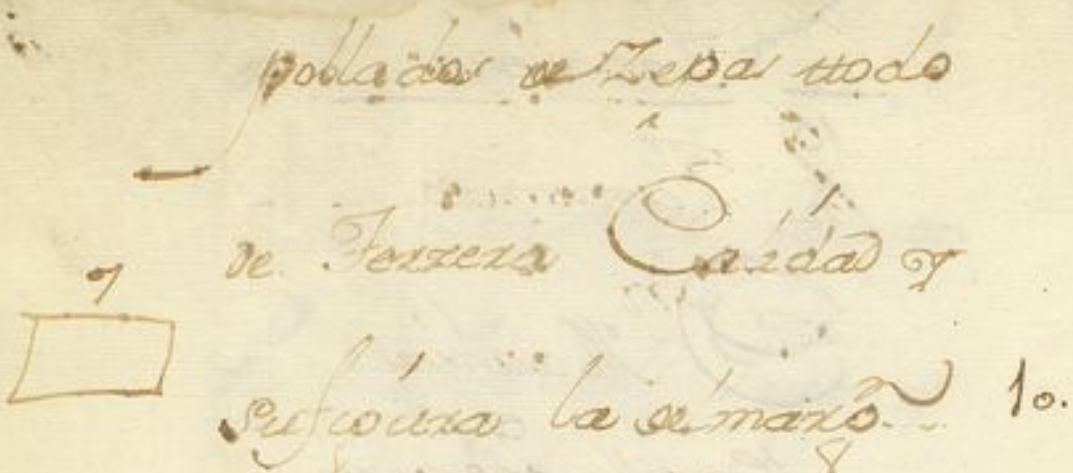 poblados de Zepa ttodo
de Terzera Calidad y
su figura la del marg.ⁿ 10.